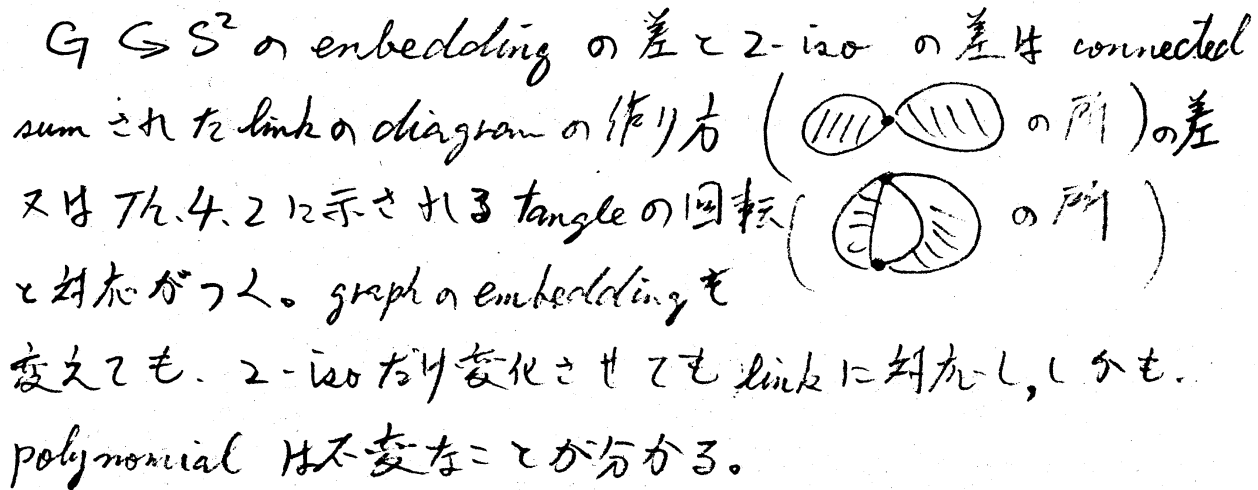 G ↪ S² の enbedding の差と 2-iso の差は connected
sum された link の diagram の作り方 ( の所 ) の差
又は Th.4.2 に示される tangle の回転 ( の所 )
と対応がつく。graph の embedding を
変えても、2-iso だけ変化させても link に対応し,しかも、
polynomial は不変なことが分かる。